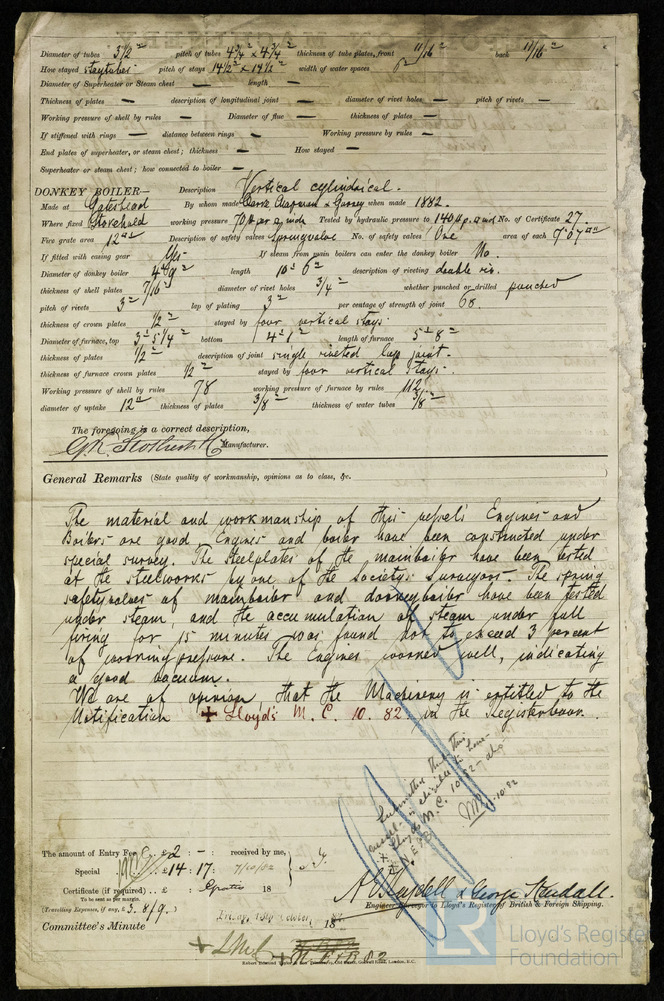 Diameter of tubes 3 1/2" pitch of tubes 4 3/4" x 4 3/4" thickness of tube plates, front 11/16" back 11/16"
How stayed staytubes pitch of stays 14 1/2" x 14 1/2" width of water spaces
Diameter of Superheater or Steam chest — length —
Thickness of plates — description of longitudinal joint — diameter of rivet holes — pitch of rivets —
Working pressure of shell by rules — Diameter of flue — thickness of plates —
If stiffened with rings — distance between rings — Working pressure by rules —
End plates of superheater, or steam chest; thickness — How stayed —
Superheater or steam chest; how connected to boiler —
DONKEY BOILER— Description Vertical cylindrical.
Made at Gateshead By whom made Clarke Chapman & Gurney when made 1882.
Where fixed Stokehold working pressure 70 Tested by hydraulic pressure to 140 No. of Certificate 27.
Fire grate area 12 Description of safety valves Springvalve No. of safety valves One area of each 7.07
If fitted with casing gear Yes- If steam from main boilers can enter the donkey boiler No.
Diameter of donkey boiler length 10' 6" description of riveting double riv.
thickness of shell plates 7/16" diameter of rivet holes 3/4" whether punched or drilled punched
pitch of rivets 3" lap of plating 3" per centage of strength of joint 68.
thickness of crown plates 1/2" stayed by four vertical stays
Diameter of furnace, top 3' 5 1/4" bottom 4' 1" length of furnace 5' 8"
thickness of plates 1/2" description of joint single riveted lap joint.
thickness of furnace crown plates 1/2" stayed by four vertical stays.
Working pressure of shell by rules 78 working pressure of furnace by rules 112
diameter of uptake 12" thickness of plates 3/8" thickness of water tubes 3/8"
The foregoing is a correct description,
Manufacturer.
General Remarks (State quality of workmanship, opinions as to class, &c.)
The material and workmanship of this vessel's Engines and
Boilers are good Engines and boiler have been constructed under
special survey. The steelplates of the mainboiler have been tested
at the steelworks by one of the Society's Surveyors. The spring
safetyvalves of mainboiler and donkeyboiler have been tested
under steam, and the accumulation of steam under full
firing for 15 minutes was found not to exceed 3 percent
of working pressure. The Engines worked well, indicating
a good vacuum.
We are of opinion, that the Machinery is entitled to the
Notification + Lloyd's M. C. 10. 82. in the Registerbook.
Submitted that this
vessel is eligible to have
+ Lloyd's M.C. 10.82
10.82
The amount of Entry Fee £2 : - : received by me,
Special £14 : 17 :
Certificate (if required) .. £ Gratis 18
To be sent as per margin.
(Travelling Expenses, if any, £3.8/9.)
& George Kendall.
Engineer Surveyor to Lloyd's Register of British & Foreign Shipping.
Committee's Minute 18
+ LMC
Lloyd's Register
Foundation
LR